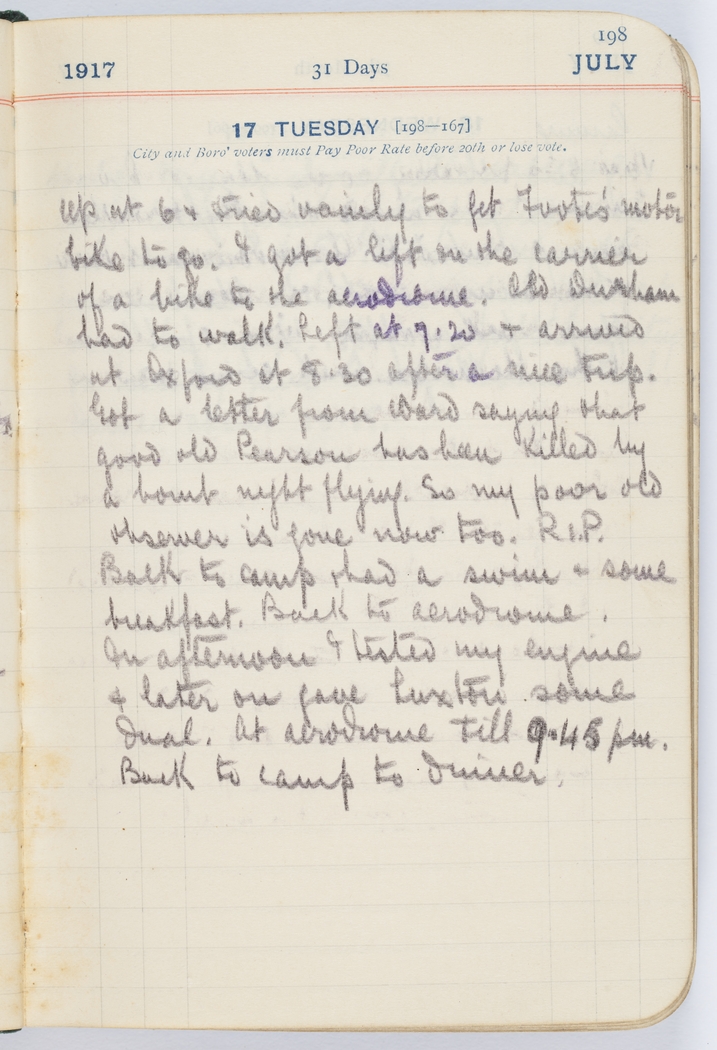 198
1917 31 Days JULY
17 TUESDAY [198—167]
City and Boro' voters must Pay Poor Rate before 20th or lose vote.
Up at 6 & tried vainly to get Foote's motor
bike to go. I got a lift on the carrier
of a bike to the aerodrome. Old Durham
had to walk. Left at 7.20 & arrived
at Oxford at 8.30 after a nice trip.
Got a letter from Ward saying that
good old Pearson has been killed by
a bomb night flying. So my poor old
observer is gone now too. R.I.P.
Back to camp & had a swim & some
breakfast. Back to aerodrome.
In afternoon I tested my engine
& later on gave Luxton some
dual. At aerodrome till 9.45 pm.
Back to camp to dinner.